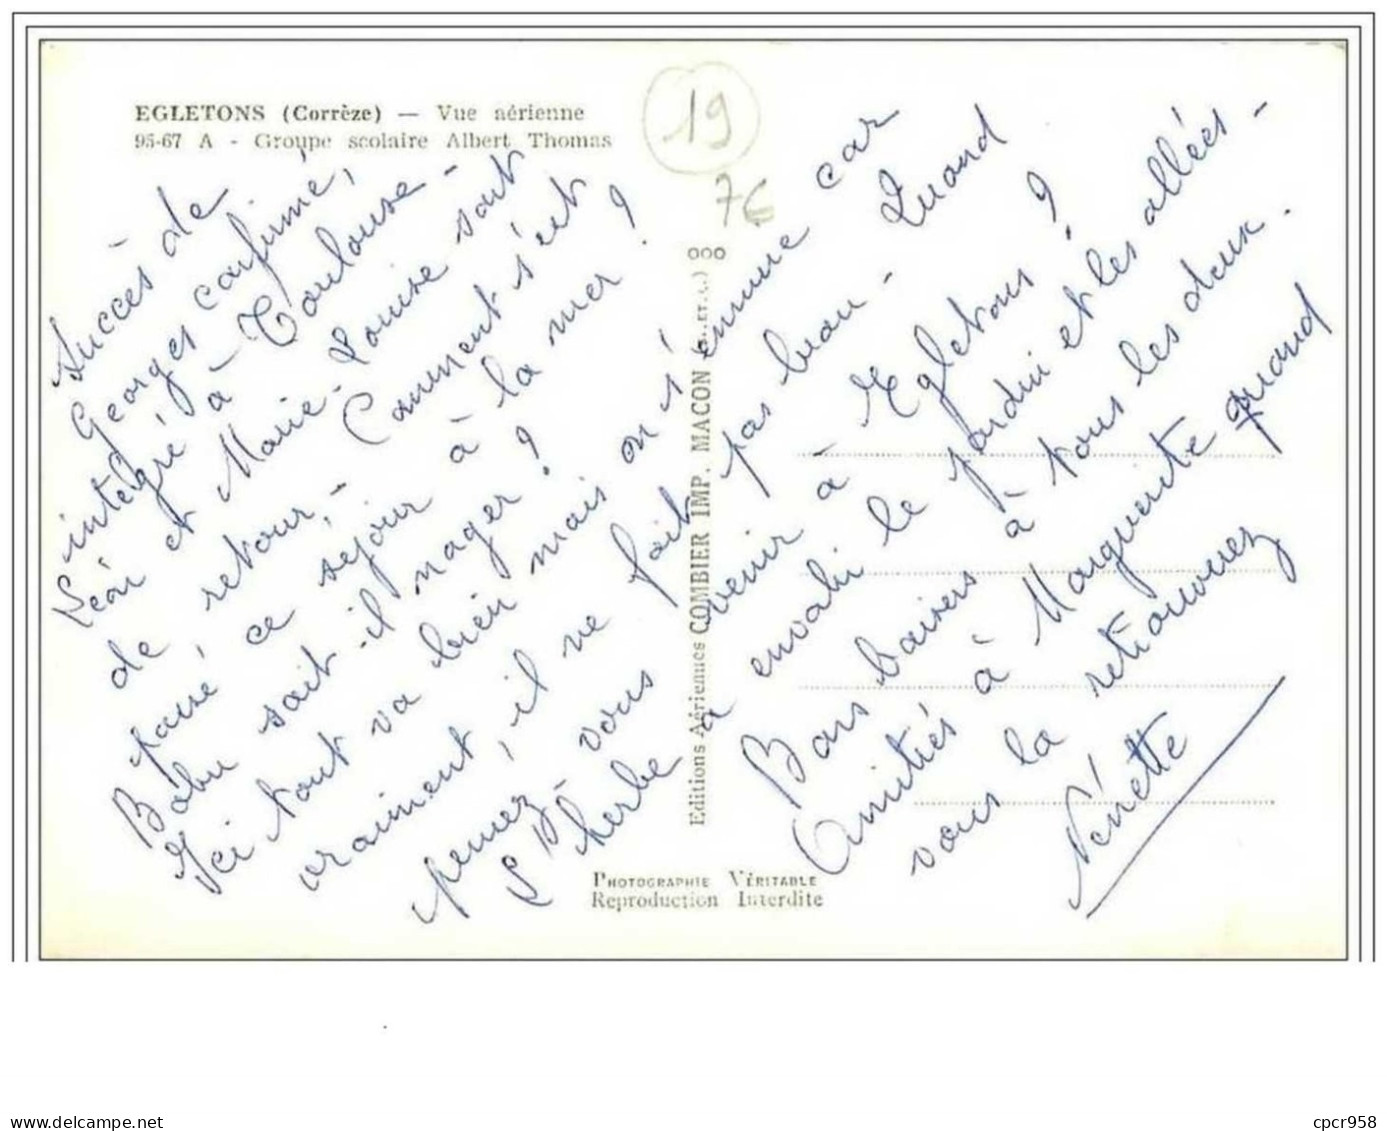 EGLETONS (Corrèze) — Vue aérienne
95-67 A - Groupe scolaire Albert Thomas
19
7€
Succès de
Georges confirmé,
intégré à Toulouse -
Léon et Marie-Louise sont
de retour, - Comment s'est
passé, ce séjour à la mer ?
Babu sait-il nager ?
Ici tout va bien mais on s'ennuie car
vraiment, il ne fait pas beau - Quand
pensez-vous venir à Egletons ?
L'herbe a envahi le jardin et les allées -
Bons baisers à tous les deux.
Amitiés à Marguerite quand
vous la retrouverez
Nénette
Editions Aériennes COMBIER IMP. MACON (S.-ET-L.) 000
PHOTOGRAPHIE VÉRITABLE
Reproduction Interdite
delcampe.net
cpcr958